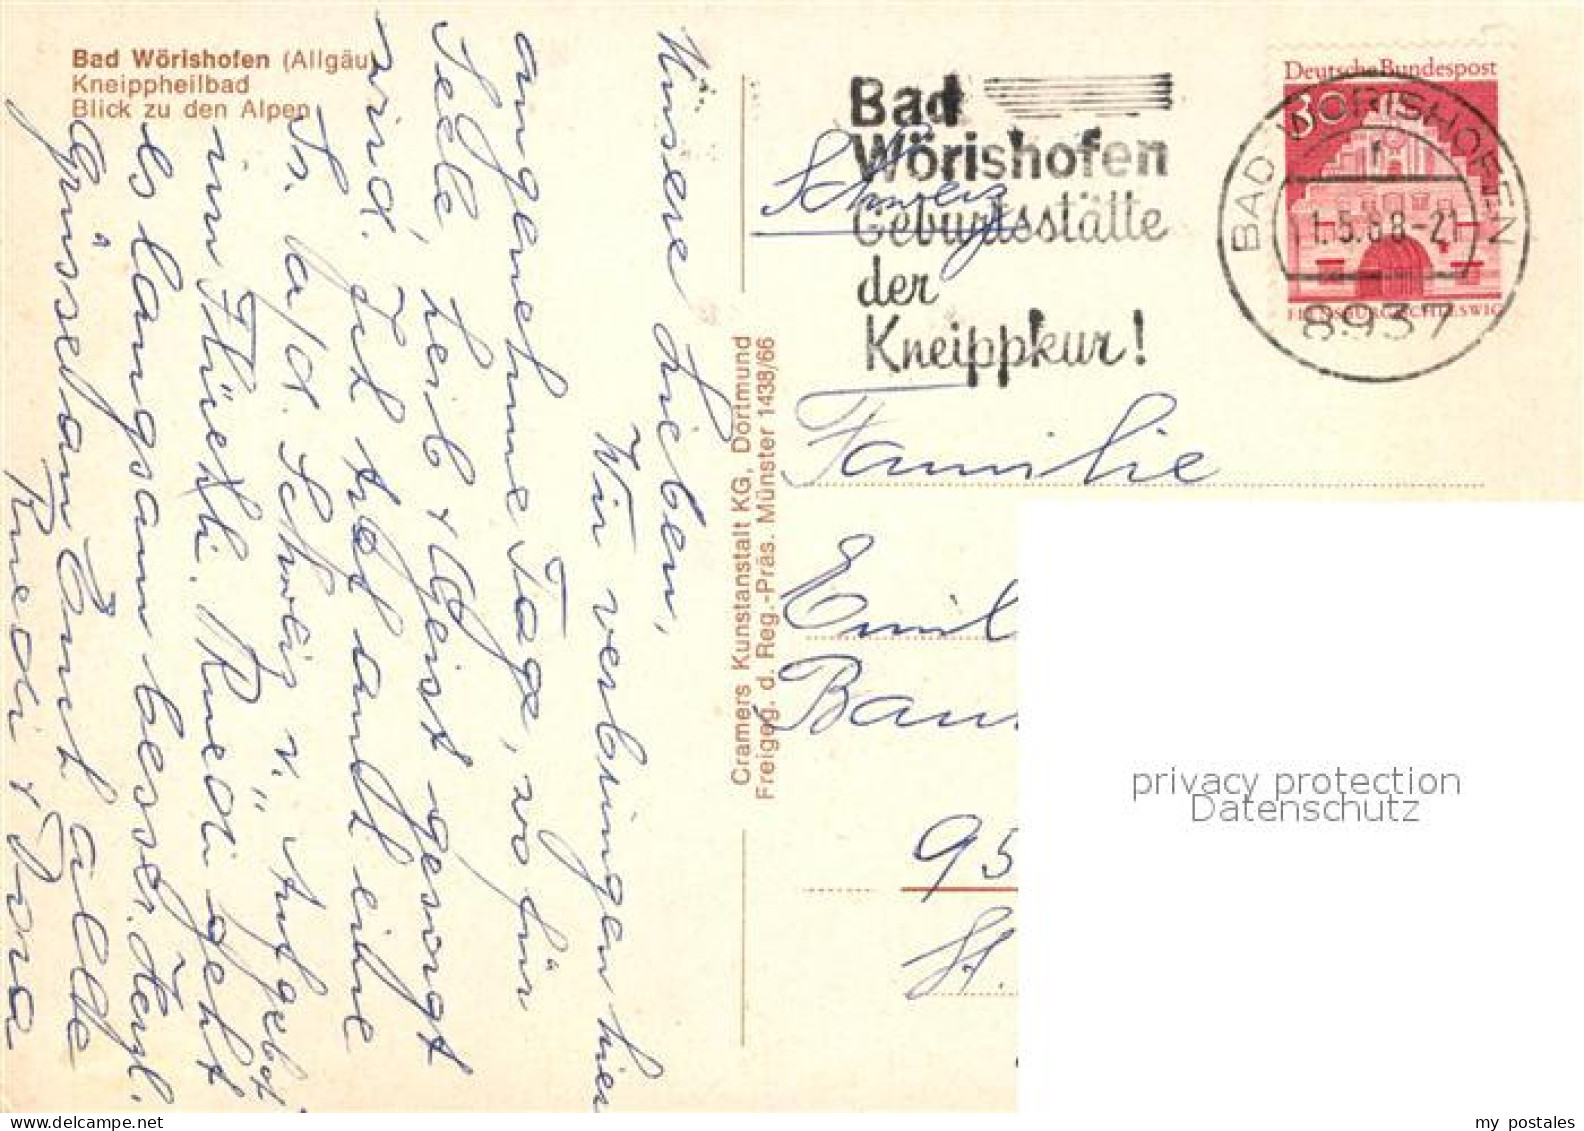 Bad Wörishofen (Allgäu)
Kneippheilbad
Blick zu den Alpen
Unsere Lieben,
Wir verbringen hier
angenehme Tage, wo für
Seele, Leib + Geist gesorgt
wird. Ich traf auch eine
Sr. a/d. Schweiz v. "
im Flüehli. Ruedi geht
es langsam besser. Herzl.
Grüsse an Euch alle
Ruedi + Dora
Cramers Kunstanstalt KG, Dortmund
Freigeg. d. Reg.-Präs. Münster 1438/66
Bad
Wörishofen
Geburtsstätte
der
Kneippkur!
Deutsche Bundespost
30
FLENSBURG/SCHLESWIG
BAD WÖRISHOFEN
1.5.68-21
8937
Schweiz
Familie
Emil
Bau
95
St.
privacy protection
Datenschutz
my postales